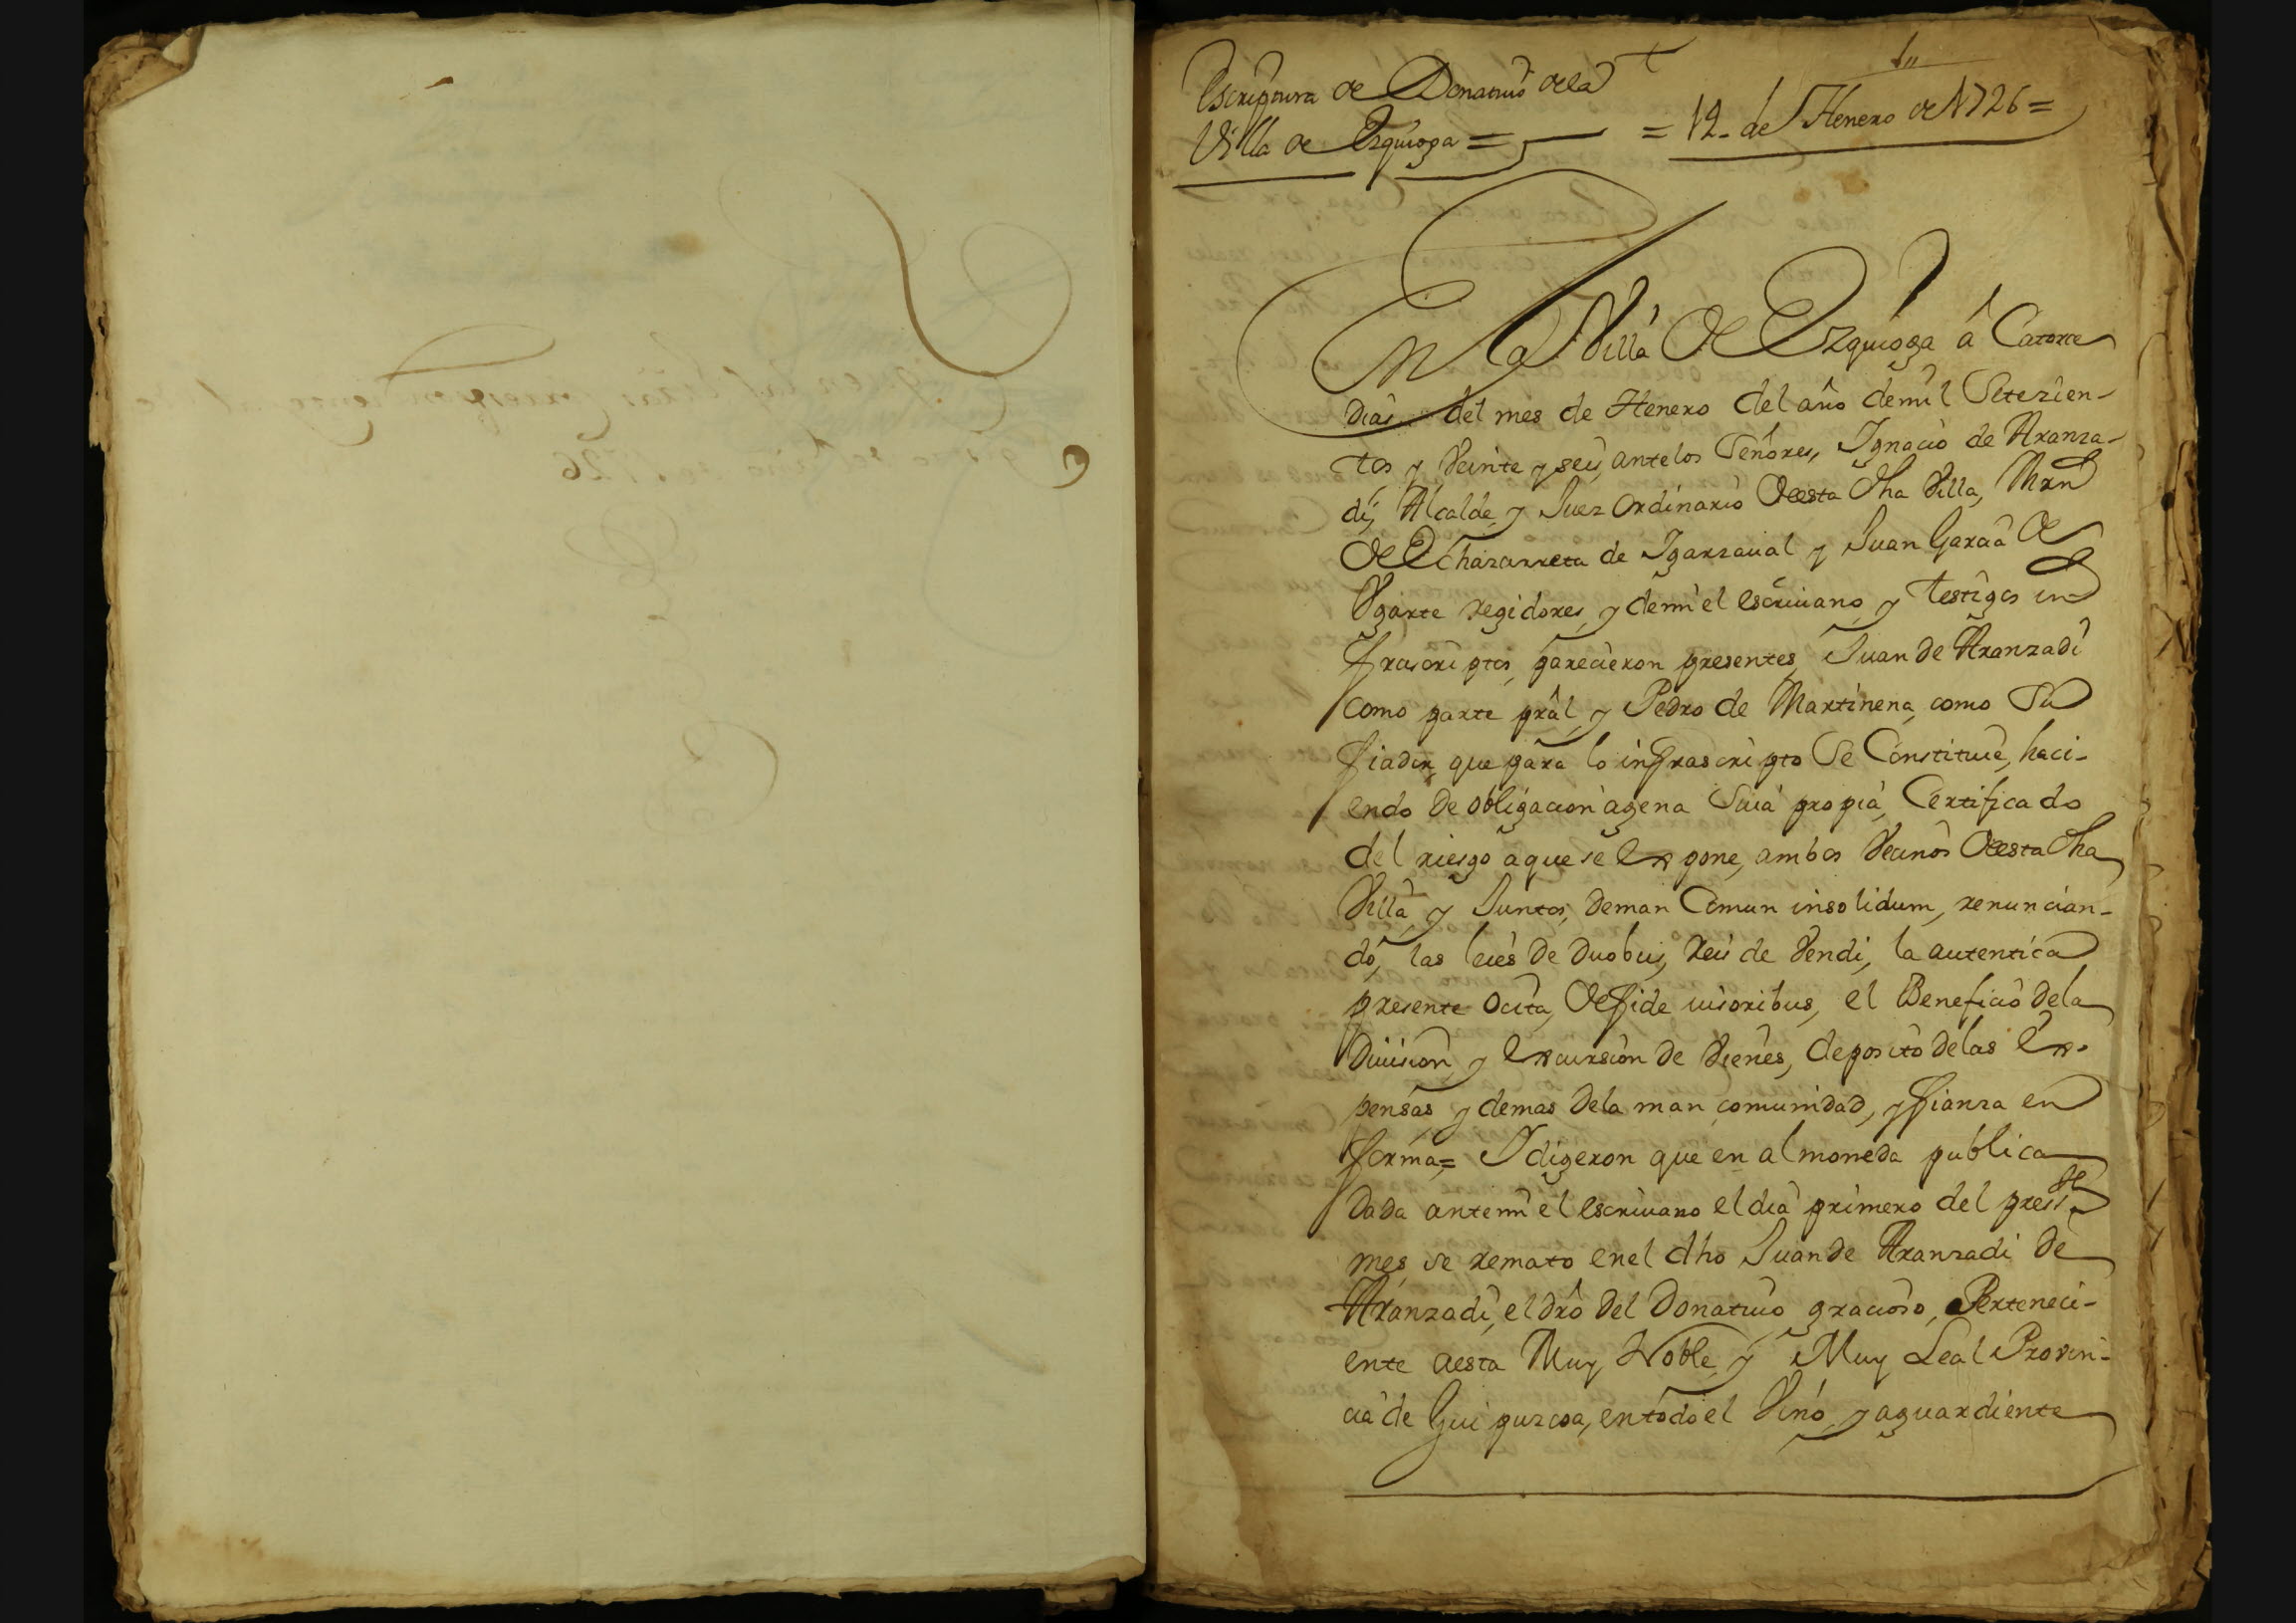 1
Escriptura de Donatiuo dela
Villa de Ezquioga = = 12 de Henero de 1726 =
En la Villa de Ezquioga â Catorce
dias del mes de Henero del año demil Setezien-
tos y Veinte y seis, antelos Señores, Ignacio de Aranza-
di, Alcalde y Juez ordinario deesta dha Villa, Mrn
de Echazarreta de Igarzaual y Juan Garcia de
Vgarte regidores, y demi el escriuano y testigos in
frascriptos, parecieron presentes, Juan de Aranzadi
como parte prâl, y Pedro de Martinena, como Su
fiador, que para lo infrascripto Se Constituie, haci-
endo de obligacion agena Suia propia, Certificado
del riesgo aque se Expone, ambos Vecinos deesta dha
Villa, y Juntos, deman Comun insolidum, renuncian-
do, las leies de duobus, Reis de Vendi, la autentica
presente ocita, de fide iusoribus, el Beneficio dela
Diuision, y Excursion de Vienes, deposito delas Ex-
pensas, y demas dela man comunidad, y fianza en
forma = I digeron que en almoneda publica
dada antemi el escriuano el dia primero del press.te
mes, se remato enel dho Juan de Aranzadi de
Aranzadi, el drô del Donatiuo gracioso, Perteneci-
ente aesta Muy Noble, y Muy Leal Provin-
cia de Guipuzcoa, entodo el Vino, y aguardiente